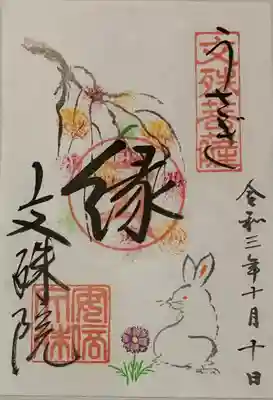 うさぎ
文殊菩薩
縁
令和三年十月十日
文殊院